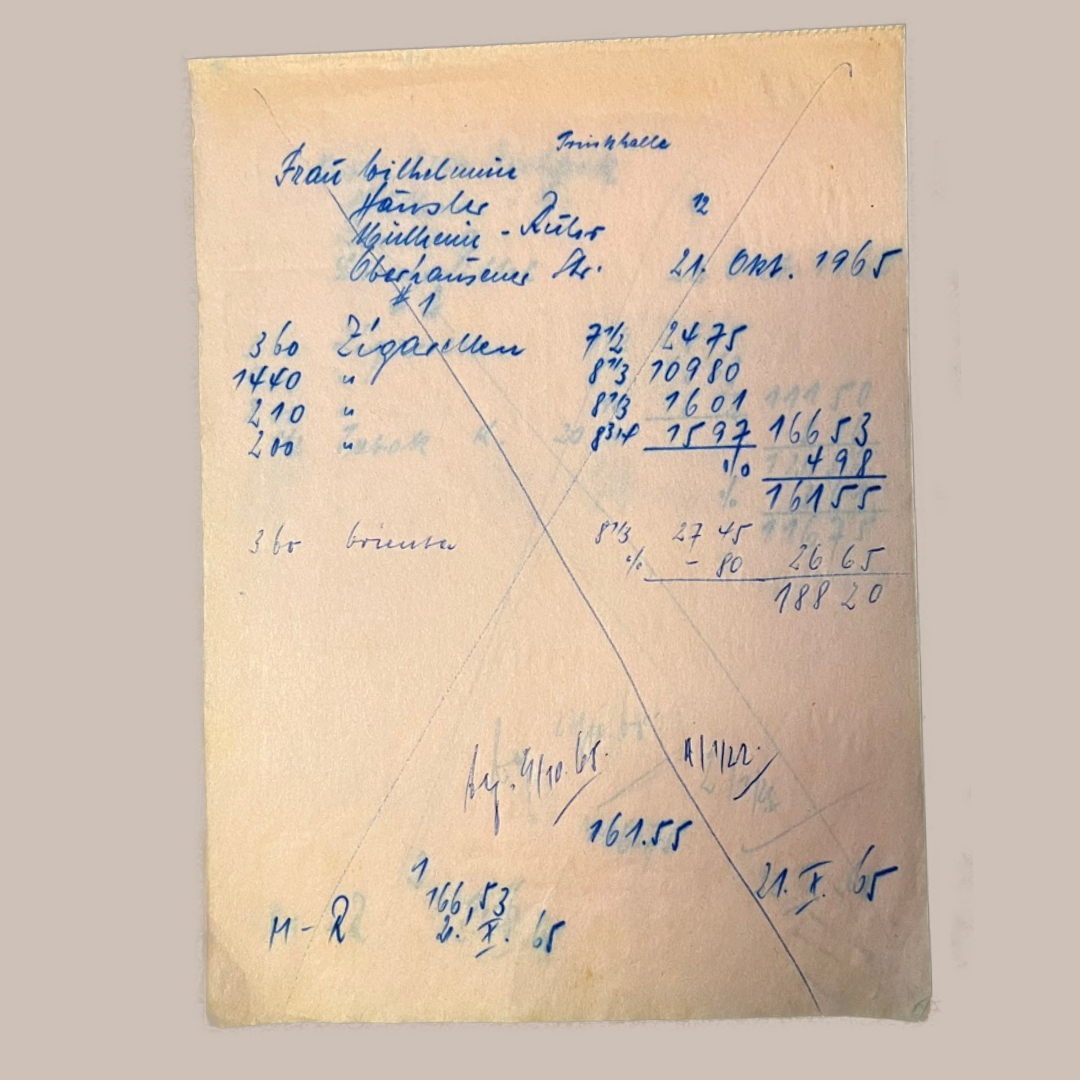 Trinkhalle
Frau Wilhelmine
Häusler 12
Mülheim - Ruhr
Oberhausener Str. 21. Okt. 1965
# 1
360 Zigaretten 7 1/2 2475
1440 " 8 1/3 10980
210 " 8 1/3 1601
200 " 8 3/4 1597 16653
% 498
16155
360 8 1/3 27 45
% - 80 26 65
188 20
161.55
21. X. 65
1
166,53
M - R 2. X. 65